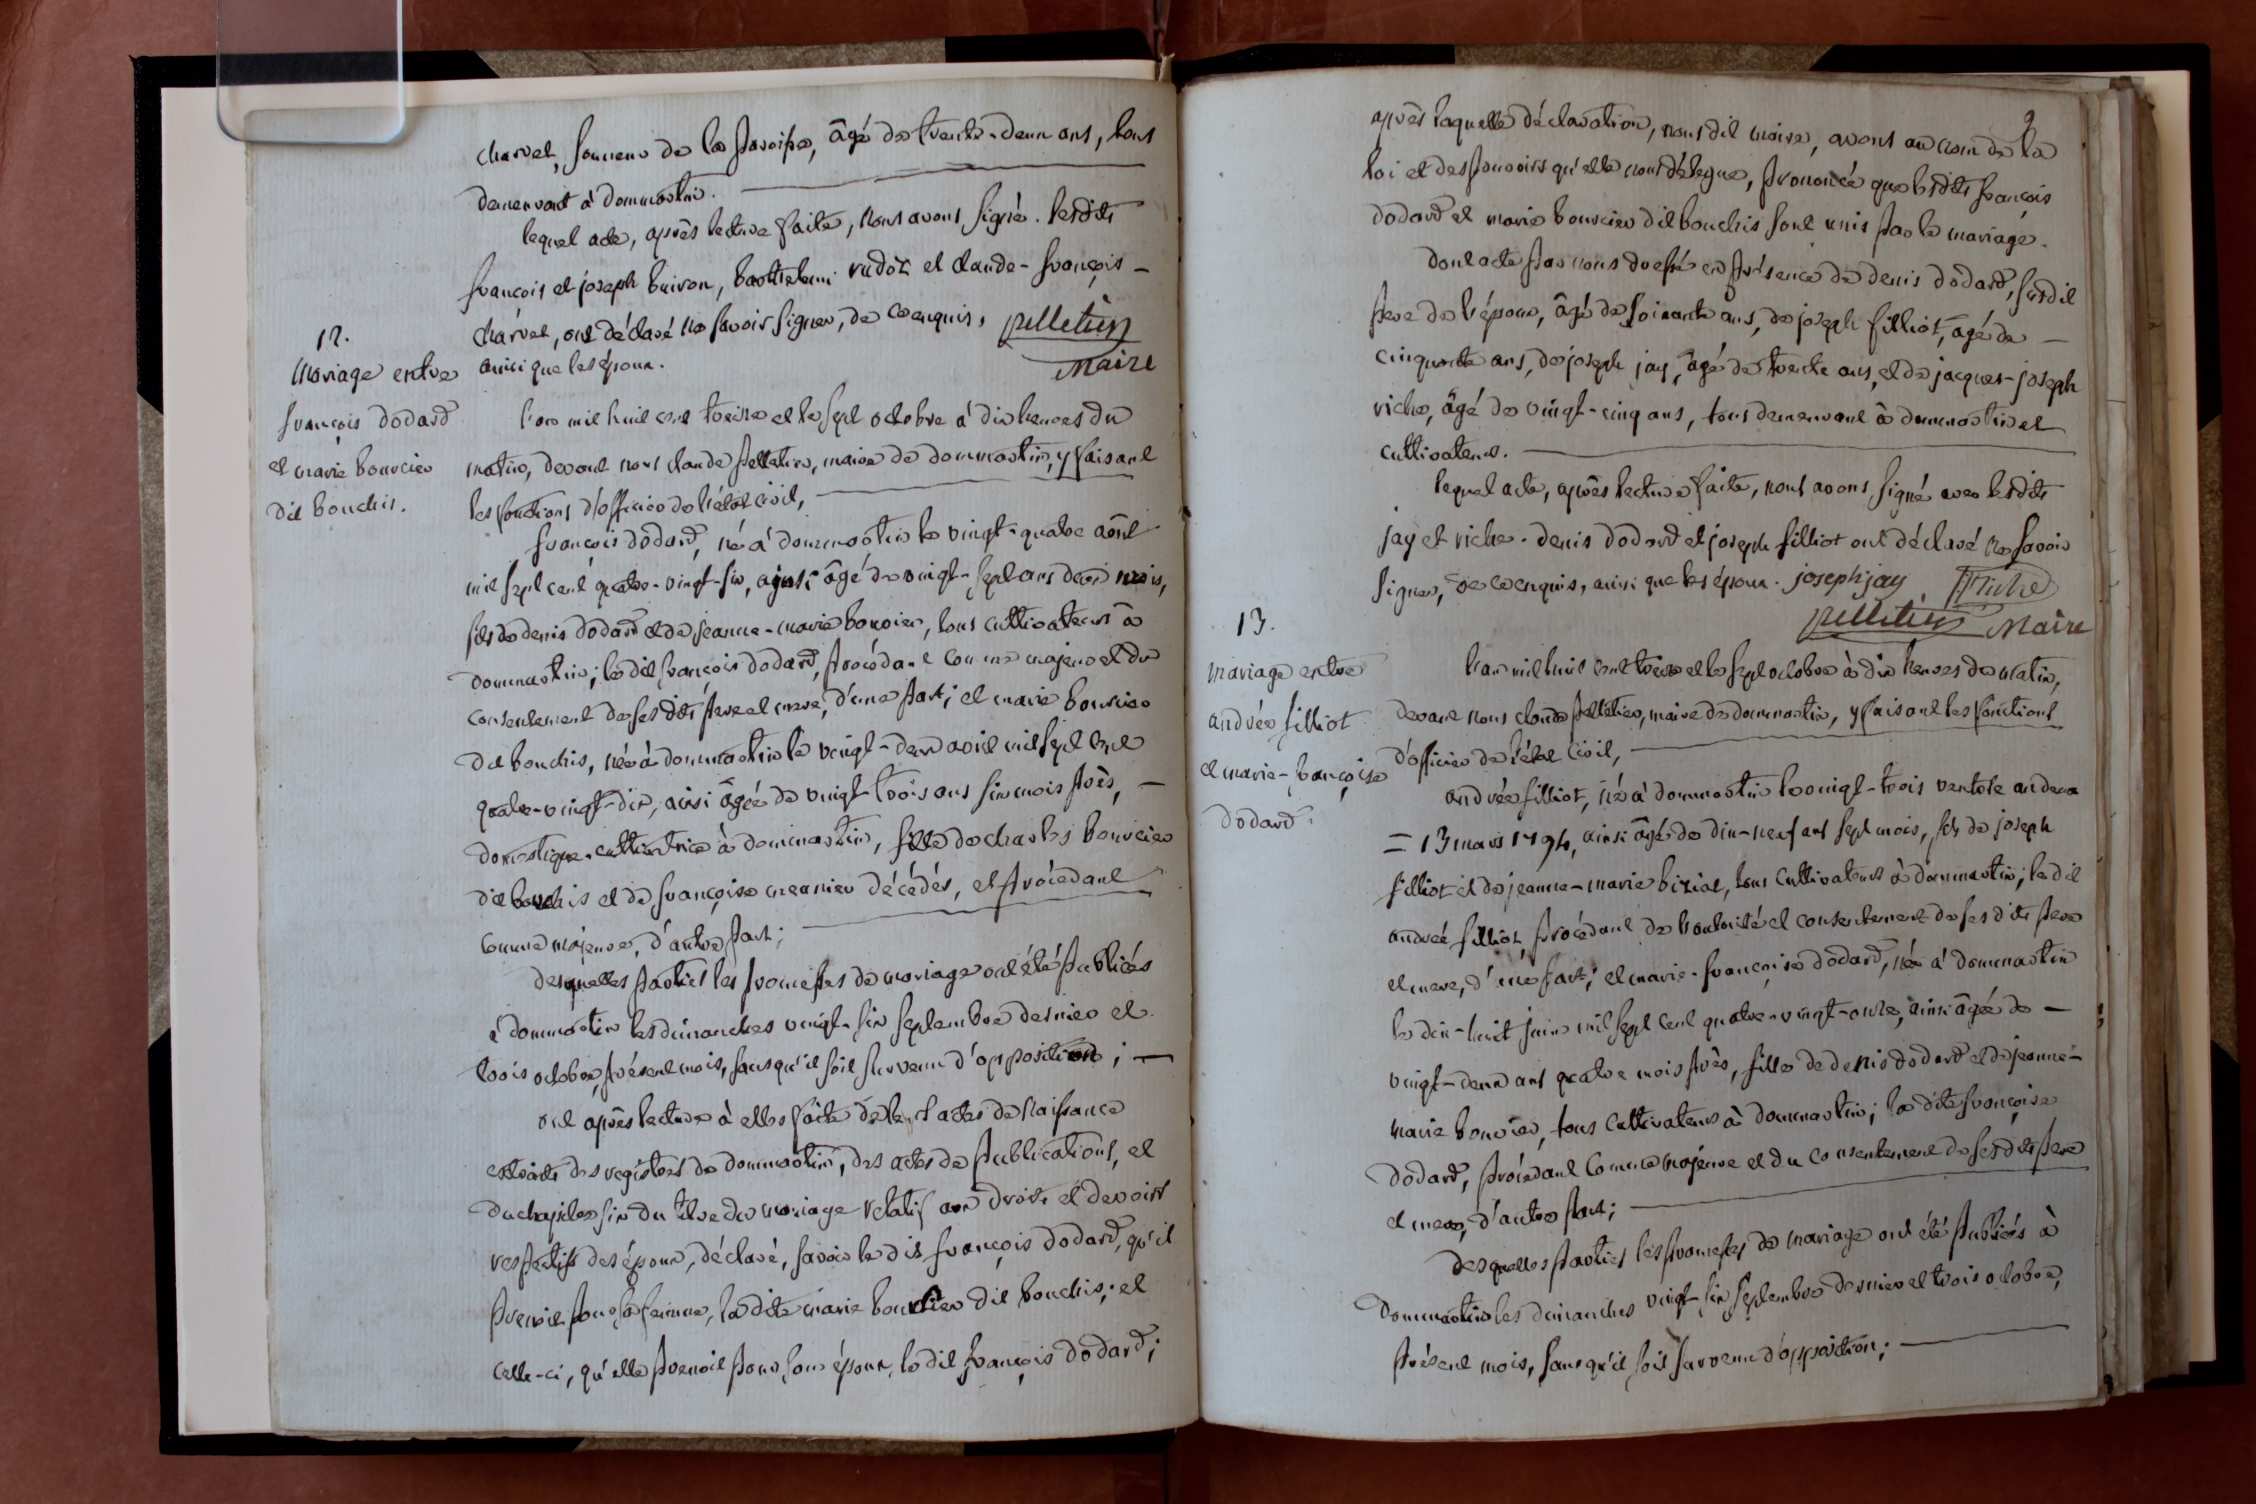 charvet, sonneur de la paroisse, âgé de trente-deux ans, tous
demeurant à dommartin.
lequel acte, après lecture faite, nous avons signé. lesdits
françois et joseph buiron, barthelemi rudoz et claude-françois-
charvet, ont déclaré ne savoir signer, de ce enquis,
ainsi que les époux. pelletier
Maire
12.
Mariage entre
françois dodard
et marie bourcier
dit bouchis.
l'an mil huit cent treize et le sept octobre à dix heures du
matin, devant nous claude pelletier, maire de dommartin, y faisant
les fonctions d'officier de l'état civil,
françois dodard, né à dommartin le vingt-quatre août
mil sept cent quatre-vingt-six, ainsi âgé de vingt-sept ans deux mois,
fils de denis dodard et de jeanne-marie bouvier, tous cultivateurs à
dommartin; le dit françois dodard, procédant comme majeur et du
consentement de ses dits pere et mere, d'une part; et marie bourcier
dit bouchis, née à dommartin le vingt-deux avril mil sept cent
quatre-vingt-dix, ainsi âgée de vingt-trois ans six mois près, —
domestique-cultivatrice à dommartin, fille de charles bourcier
dit bouchis et de françoise meunier décédés, et procédant
comme majeure, d'autre part;
desquelles parties les promesses de mariage ont été publiées
à dommartin les dimanches vingt-six septembre dernier et
trois octobre, présent mois, sans qu'il soit survenu d'opposition; —
ont après lecture à elles faite de leurs actes de naissance
extraits des registres de dommartin, des actes de publications, et
du chapitre six du titre du mariage relatif aux droits et devoirs
respectifs des époux, déclaré, savoir le dit françois dodard, qu'il
prenoit pour sa femme, la dite marie bourcier dit bouchis; et
celle-ci, qu'elle prenoit pour son époux, le dit françois dodard;
9
après laquelle déclaration, nous dit maire, avons au nom de la
loi et des pouvoirs qu'elle nous délegue, prononcé que lesdits françois
dodard et marie bourcier dit bouchis sont unis par le mariage.
dont acte par nous dressé en présence de denis dodard, susdit
pere de l'époux, âgé de soixante ans, de joseph filliot, âgé de —
cinquante ans, de joseph jay, âgé de trente ans, et de jacques-joseph
riche, âgé de vingt-cinq ans, tous demeurant à dommartin et
cultivateurs.
lequel acte, après lecture faite, nous avons signé avec lesdits
jay et riche. denis dodard et joseph filliot ont déclaré ne savoir
signer, de ce enquis, ainsi que les époux. joseph jay Riche
pelletier Maire
13.
Mariage entre
andrée filliot
et marie-françoise
dodard.
l'an mil huit cent treize et le sept octobre à dix heures du matin,
devant nous claude pelletier, maire de dommartin, y faisant les fonctions
d'officier de l'état civil,
andrée filliot, né à dommartin le vingt-trois ventose an deux
= 13 mars 1794, ainsi âgé de dix-neuf ans sept mois, fils de joseph
filliot et de jeanne-marie biziat, tous cultivateurs à dommartin; le dit
andrée filliot procédant de l'autorité et consentement de ses dits pere
et mere, d'une part; et marie-françoise dodard, née à dommartin
le dix-huit juin mil sept cent quatre-vingt-onze, ainsi âgée de —
vingt-deux ans quatre mois près, fille de denis dodard et de jeanne-
marie bouvier, tous cultivateurs à dommartin; la dite françoise
dodard, procédant comme majeure et du consentement de ses dits pere
et mere, d'autre part;
desquelles parties les promesses de mariage ont été publiées à
dommartin les dimanches vingt-six septembre dernier et trois octobre,
présent mois, sans qu'il soit survenu d'opposition;